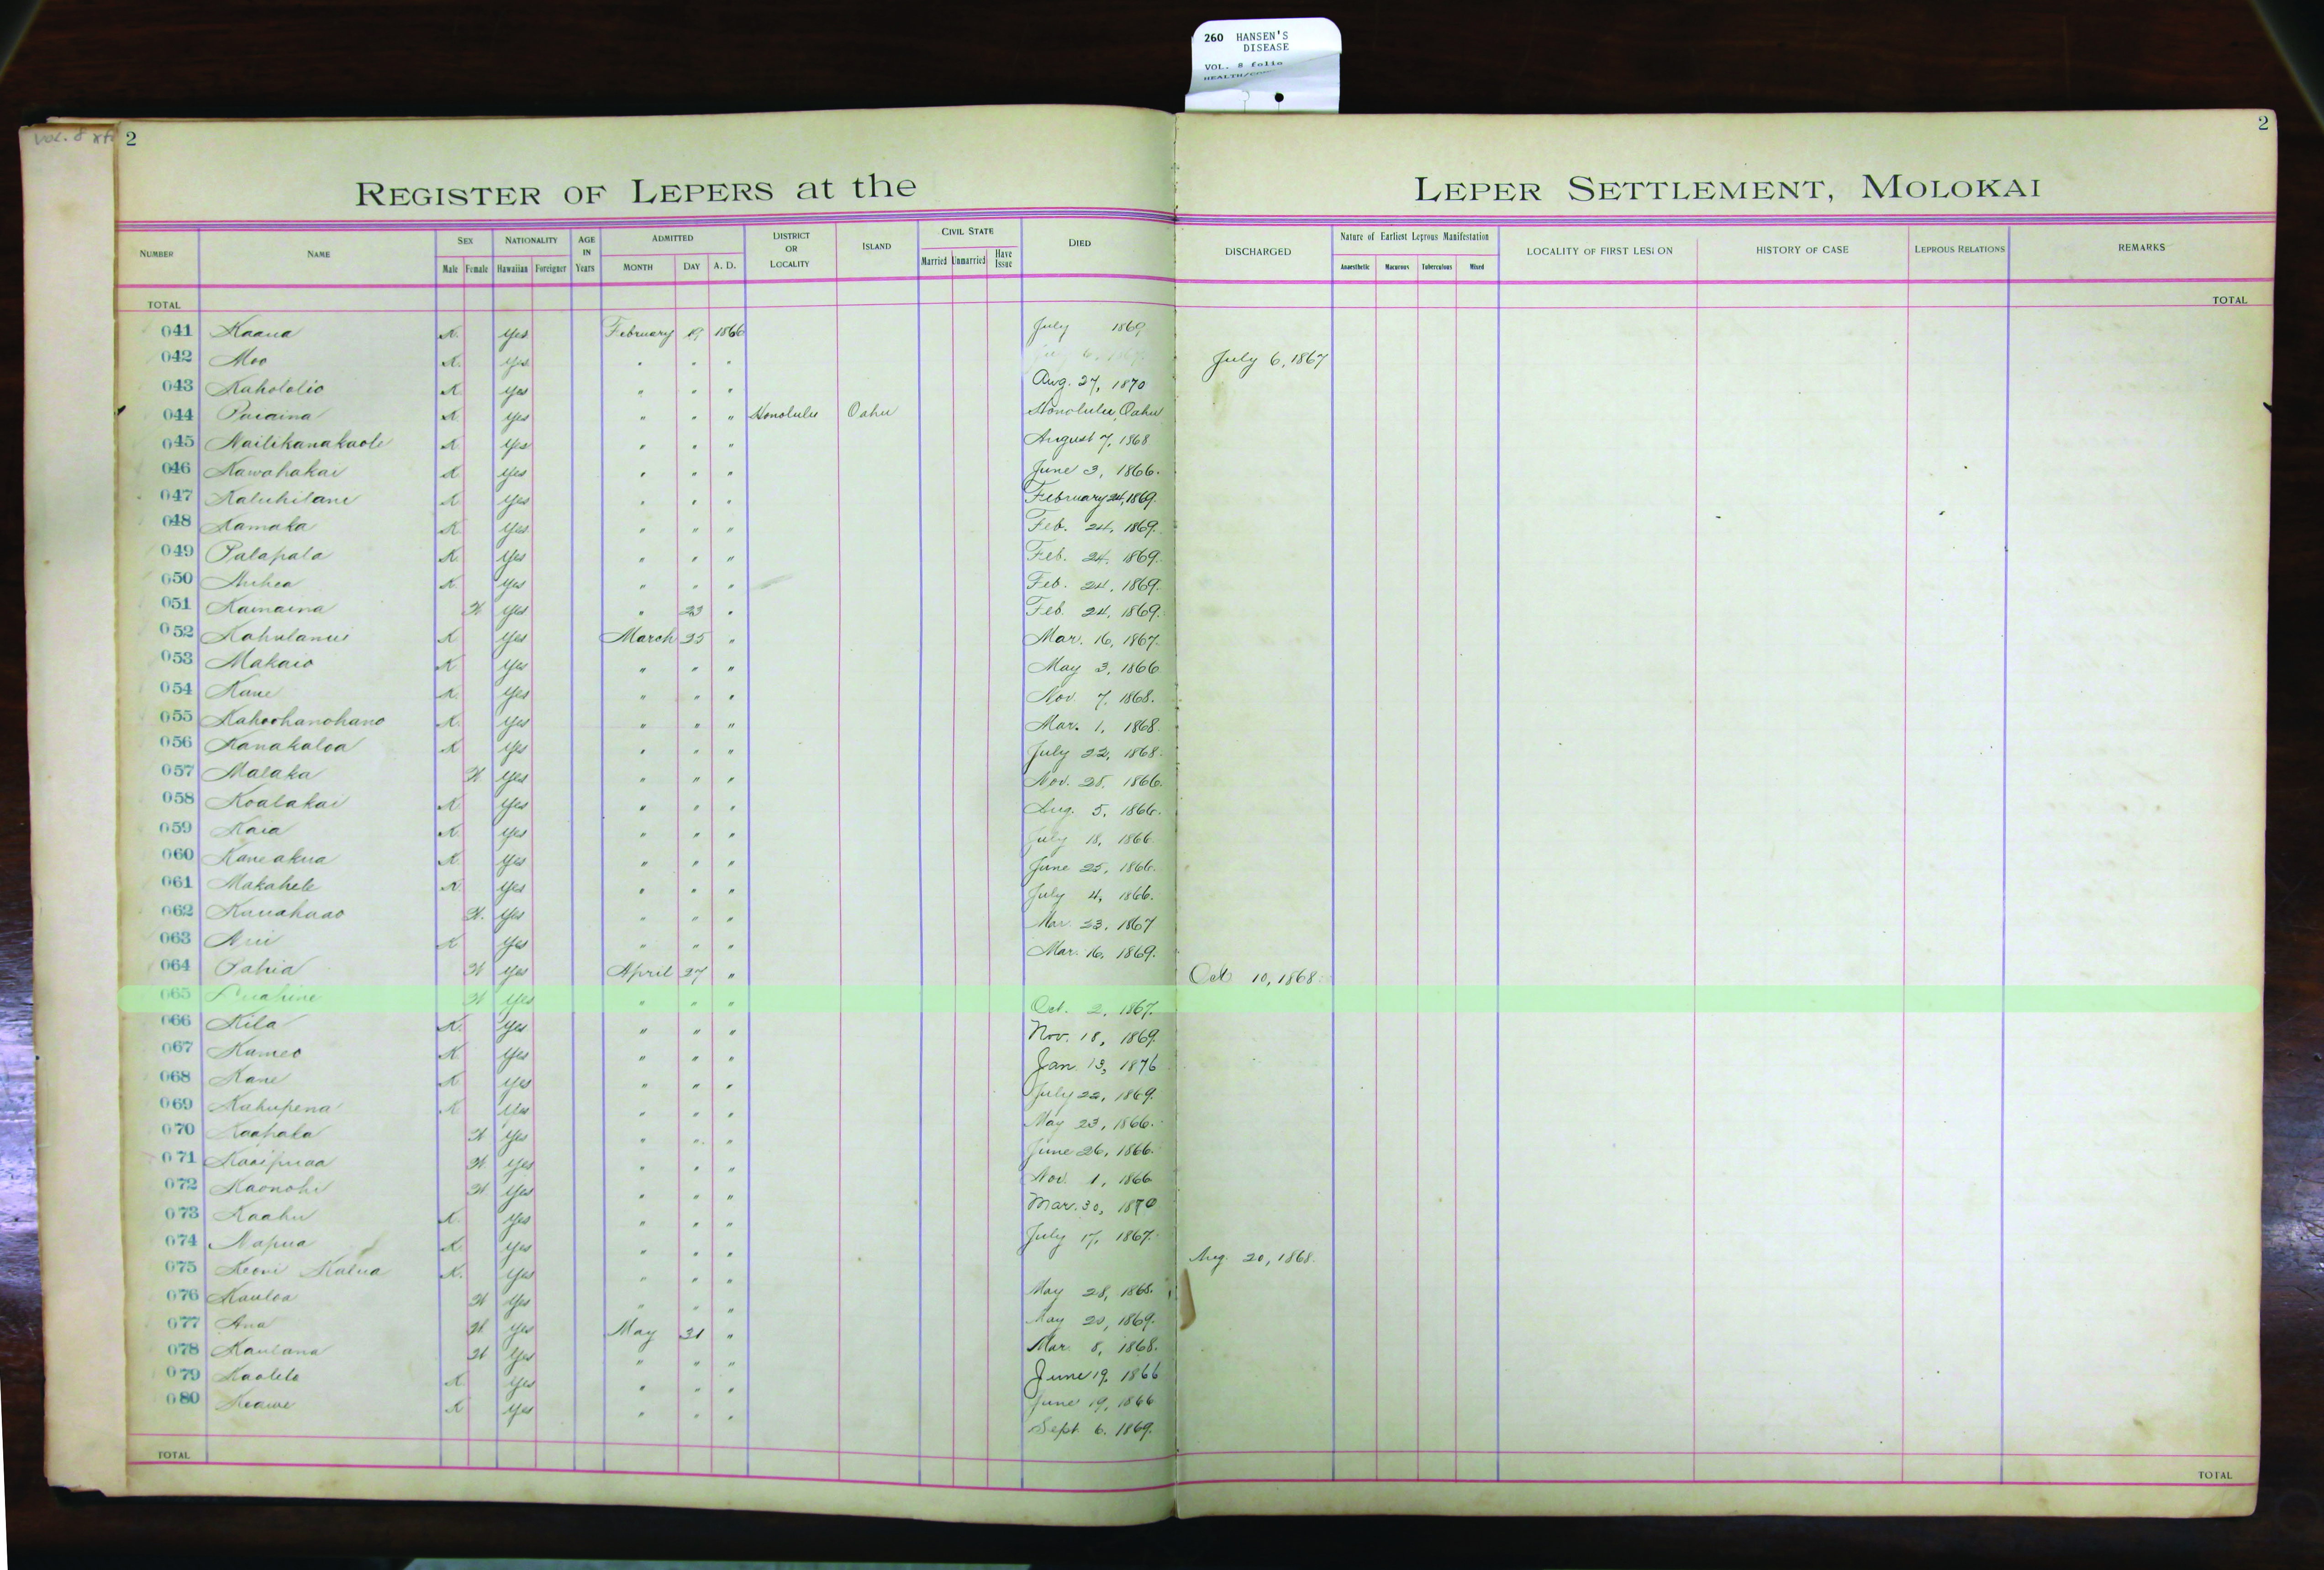 260 HANSEN'S
DISEASE
VOL. 8 folio
Vol. 8
2
2
REGISTER OF LEPERS at the LEPER SETTLEMENT, MOLOKAI
NUMBER NAME SEX NATIONALITY AGE IN Years ADMITTED DISTRICT OR LOCALITY ISLAND CIVIL STATE DIED DISCHARGED Nature of Earliest Leprous Manifestation LOCALITY OF FIRST LESION HISTORY OF CASE LEPROUS RELATIONS REMARKS
Male Female Hawaiian Foreigner MONTH DAY A. D. Married Unmarried Have Issue Anaesthetic Macurous Tuberculous Mixed
TOTAL TOTAL
041 Kaaua K. Yes February 19 1866 July 1869
042 Moo K. Yes " " " July 6, 1867
043 Kahololio K Yes " " " Aug. 27, 1870
044 Puaaina K Yes " " " Honolulu Oahu Honolulu, Oahu
045 Nailikanakaole K Yes " " " August 7, 1868
046 Kawahakai K Yes " " " June 3, 1866.
047 Kaluhilani K Yes " " " February 24, 1869.
048 Kamaka K Yes " " " Feb. 24, 1869.
049 Palapala K Yes " " " Feb. 24, 1869.
050 Auhea K Yes " " " Feb. 24, 1869.
051 Kamaina W Yes " 23 " Feb. 24, 1869.
052 Kahulanui K Yes March 25 " Mar. 16, 1867.
053 Makaio K Yes " " " May 3, 1866
054 Kane K. Yes " " " Nov. 7, 1868.
055 Kahoohanohano K. Yes " " " Mar. 1, 1868.
056 Kanakaloa K Yes " " " July 22, 1868.
057 Malaka W Yes " " " Nov. 28, 1866.
058 Koalakai K Yes " " " Aug. 5, 1866.
059 Kaia K. Yes " " " July 18, 1866.
060 Kaneakua K Yes " " " June 25, 1866.
061 Makahele K Yes " " " July 4, 1866.
062 Kauahaao W. Yes " " " Mar. 23, 1867
063 Aui K Yes " " " Mar. 16, 1869.
064 Pahia W Yes April 27 " Oct 10, 1868.
065 Puahine W Yes " " " Oct. 2, 1867.
066 Kila K. Yes " " " Nov. 18, 1869.
067 Kameo K Yes " " " Jan 13, 1876
068 Kane K Yes " " " July 22, 1869.
069 Kahupena K Yes " " " May 23, 1866.
070 Kaahala W Yes " " " June 26, 1866.
071 Kaaipuaa W. Yes " " " Nov. 1, 1866
072 Kaonohi W Yes " " " Mar. 30, 1870
073 Kaahu K. Yes " " " July 17, 1867.
074 Napua K Yes " " " Aug. 20, 1868.
075 Keoni Kalua K. Yes " " " May 28, 1868.
076 Kauloa W Yes " " " May 20, 1869.
077 Ana W. Yes May 31 " Mar. 8, 1868.
078 Kaulana W Yes " " " June 19, 1866
079 Kaolelo K Yes " " " June 19, 1866
080 Keawe K Yes " " " Sept. 6, 1869.
TOTAL TOTAL